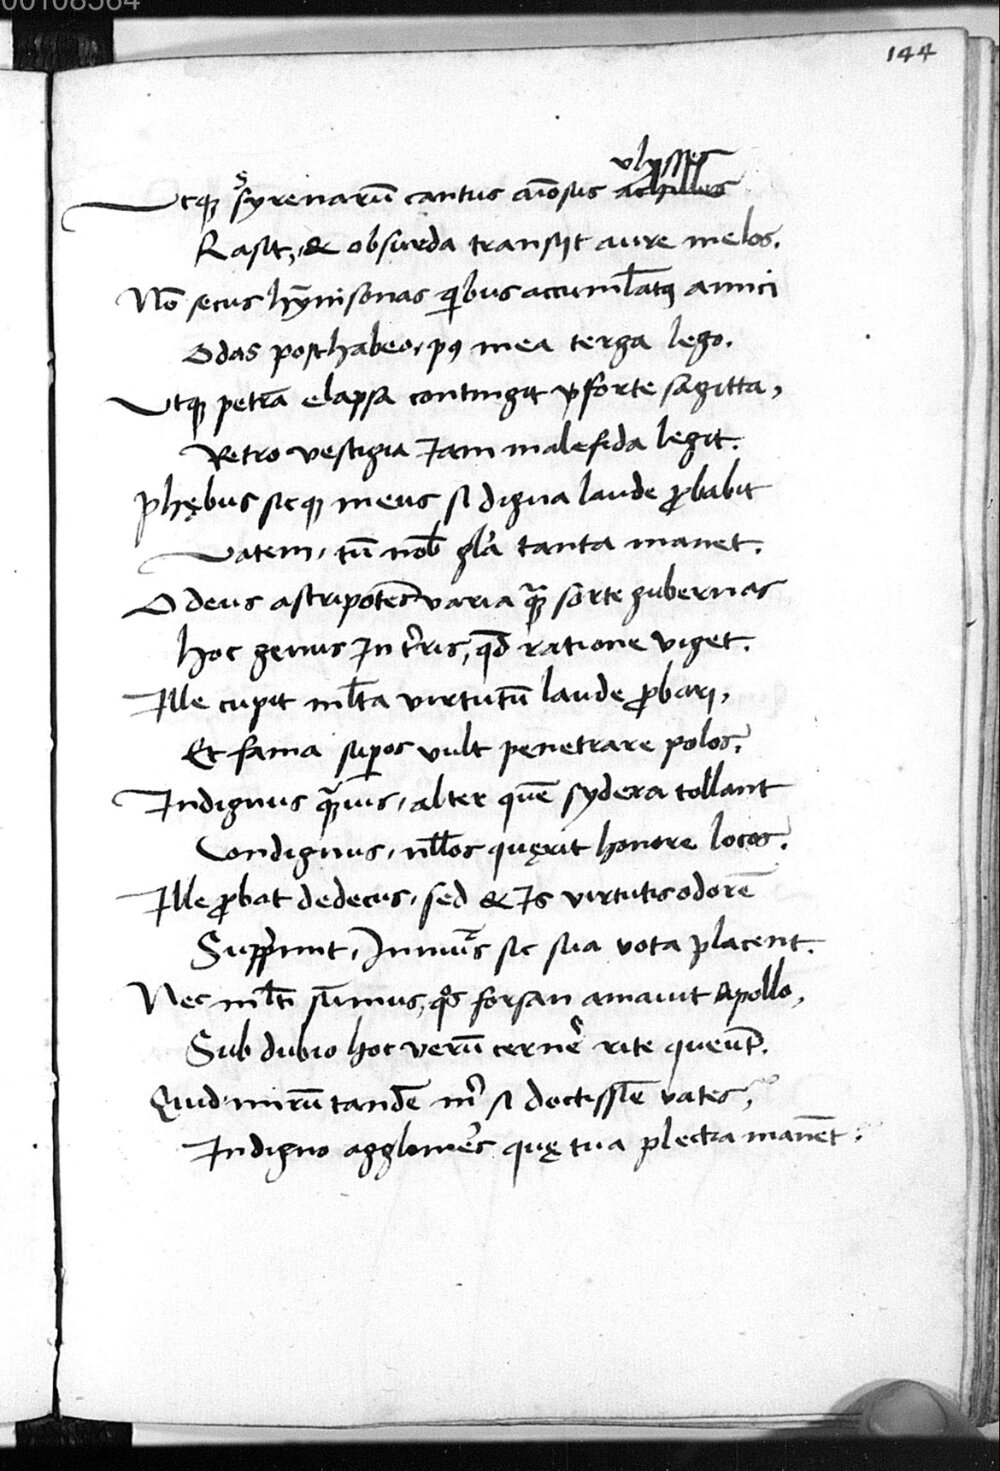 00108564
144
ulysses
Utqꝫ syrenarū cantus aīosus achilles
Rasit, & obsurda transijt aure melos.
Nō secus hȳnisonas qibus accuml̄atꝰ amici
Odas posthabeo, pꝰ mea terga lego.
Utqꝫ petrā elapsa contingit forte sagitta,
Retro vestigia Jam malefida legit.
Phębus sicqꝫ meus si digna laude ꝓbabit
Vatem, tū nob̄ gl̄a tanta manet.
O deus astripotēs varia qꝫ sorte gubernas
Hoc genus Jn tr̄ris, qd̄ ratione viget.
Ille cupit ml̄ta virtutū laude ꝓbari,
Et fama suꝑos vult penetrare polos,
Indignus qꝫvis, alter quē sydera tollant
Condignus, nll̄os quęrit honore locos.
Ille ꝓbat dedecus, sed & Is virtutis odorē
Supp̄rimit, sic sua vota placent.
Nec ml̄ti sumus, qͦs forsan amavit Apollo,
Sub dubio hoc verū cernē rite queūt.
Quid mirū tandē mͥ si doctissīe vates,
Indigno agglomēs quę tua plectra manēt.